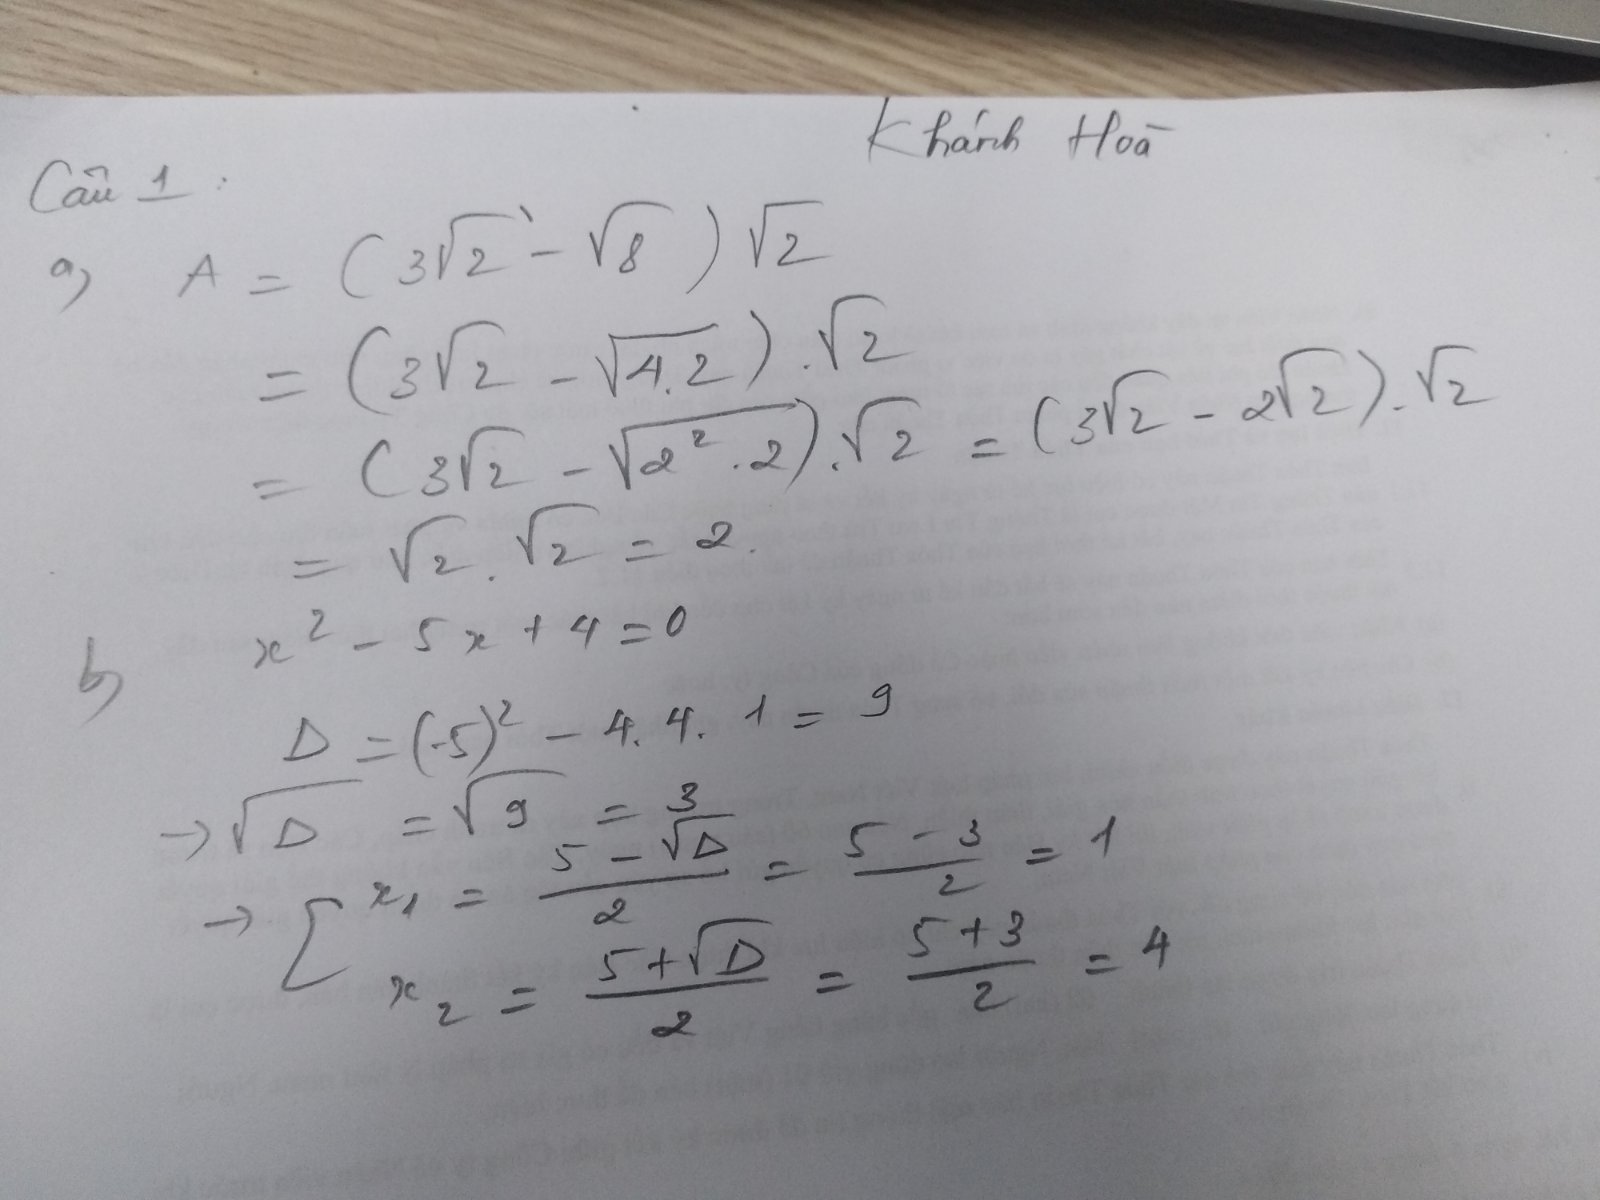 Khánh Hoà
Câu 1:
a) A = (3√2 - √8) √2
= (3√2 - √4.2) . √2
= (3√2 - √2² . 2) . √2 = (3√2 - 2√2) . √2
= √2 . √2 = 2.
b) x² - 5x + 4 = 0
Δ = (-5)² - 4. 4. 1 = 9
→ √Δ = √9 = 3
→ [ x₁ = (5 - √Δ)/2 = (5 - 3)/2 = 1
x₂ = (5 + √Δ)/2 = (5 + 3)/2 = 4